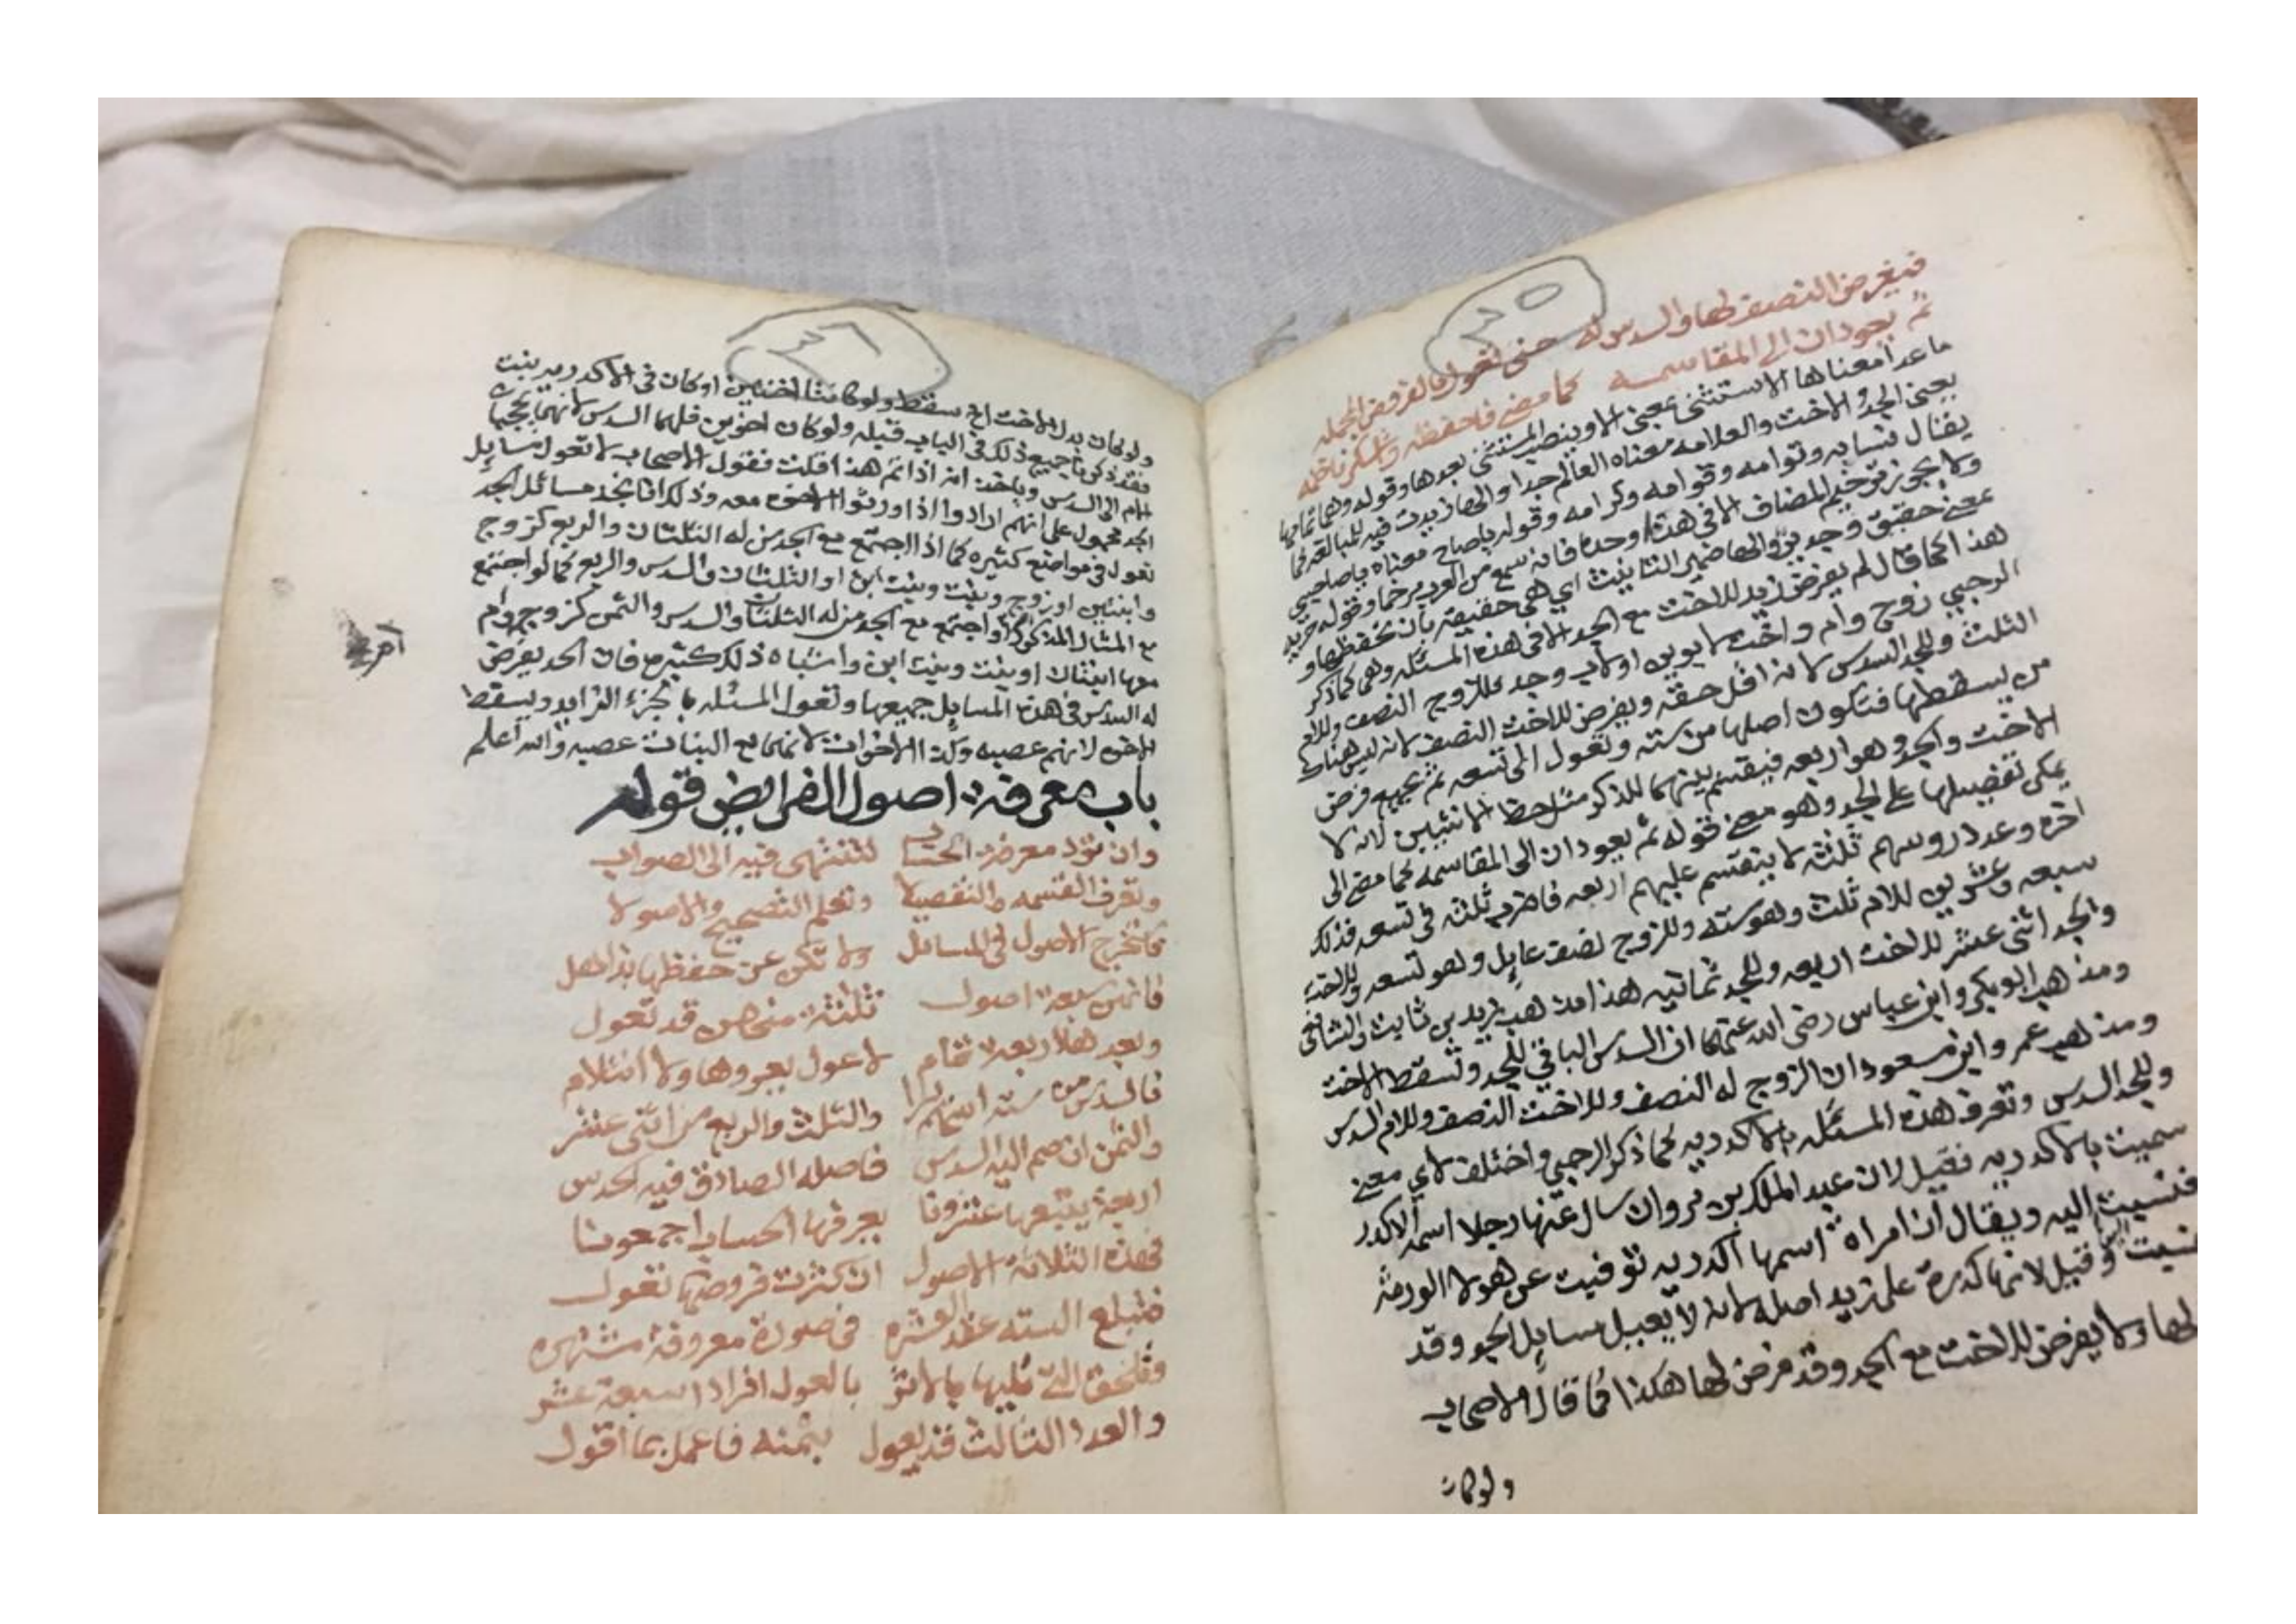 ٣٥
فيفرض النصف لها والسدس له حتى تعول بالفروض المجمله
ثم يعودان الى المقاسمه كما مضى فاحفظه واشكر ناظمه
ما عدا معناها الاستثنى بمعنى الا وينصب المستثنى بعدها وقوله وهما تمامها
يعنى الجد والاخت والعلامه معناه العالم جدا والها زيدت فيه للمبالغه كما
يقال نسابه وقوله ياصاح معناه ياصاحبى
ولا يجوز ترخيم المضاف الا في هذه وحده فانه سمع من العرب مرخما وقوله حريه
معنى حقيق وجدير والها ضمير التانيث اي هي حقيقه بان تحفظها و
هذا كما قال لم يفرض زيد للاخت مع الجد الا في هذه المسئله وهى كما ذكر
الرحبي زوج وام واخت لابوين او لاب وجد فللزوج النصف وللام
الثلث وللجد السدس لانه اقل حقه ويفرض للاخت النصف لانه ليس هناك
من يسقطها فتكون اصلها من سته وتعول الى تسعه ثم يجمع فرض
الاخت والجد وهو اربعه فيقسم بينهما للذكر مثل حظ الانثيين لانه لا
يمكن تفضيلها على الجد وهو معنى قوله ثم يعودان الى المقاسمه كما مضى الى
اخره وعدد روسهم ثلثه لا ينقسم عليهم اربعه فاضرب ثلثه في تسعه فذلك
سبعه وعشرين للام ثلث وهو سته وللزوج نصف عايل وهو تسعه وللاخت
والجد اثنى عشر للاخت اربعه وللجد ثمانيه هذا مذهب زيد بن ثابت والشافعي
ومذهب ابو بكر وابن عباس رضى الله عنهما ان السدس الباقي للجد وتسقط الاخت
ومذهب عمر وابن مسعود ان الزوج له النصف وللاخت النصف وللام السدس
وللجد السدس وتعرف هذه المسئله بالاكدريه كما ذكر الرحبي واختلف لاي معنى
سميت بالاكدريه فقيل لان عبد الملك بن مروان سال عنها رجلا اسمه الاكدر
فنسبت اليه ويقال ان امراة اسمها اكدريه توفيت عن هولا الورثه
فنسبت وقيل لانها كدرة على زيد اصله لانه لا يعيل مسايل الجد وقد
لها ولا يفرض للاخت مع الجد وقد فرض لها هكذا كما قال الاصحاب
ولو كان
٣٦
ولو كان بدل الاخت اخ سقط ولو كانتا اختين او كان في الاكدريه بنت
فقد ذكرنا جميع ذلك في الباب قبله ولو كان اخوين فلهما السدس لانهما يحجبا
الام الى السدس وياخذ انه اذا تم هذا قلت فقول الاصحاب لا تعول مسايل
الجد محمول على انهم ارادوا اذا ورثوا الاخوه معه وذلك انا نجد مسائل الجد
تعول في مواضع كثيره كما اذا اجتمع مع الجد من له الثلثان والربع كزوج
وابنتين او زوج وبنت وبنت ابن او الثلثان والسدس والربع كما لو اجتمع
مع المثال المذكور ام او اجتمع مع الجد من له الثلثان والسدس والثمن كزوجه وام
معها ابنتان او بنت وبنت ابن واشباه ذلك كثير فان الجد يفرض
له السدس في هذه المسايل جميعها وتعول المسئله بالجزء الزايد ويسقط
الاخوه لانهم عصبه وكذا الاخوات لانهن مع البنات عصبه والله اعلم
باب معرفة اصول الفرايض قوله
وان ترد معرفة الحساب لتنتهي فيه الى الصواب
وتعرف القسمه والتفصيلا وتعلم التصحيح والاصولا
فاستخرج الاصول في المسائل ولا تكن عن حفظها بذاهل
فانهن سبعة اصول ثلثة منهن قد تعول
وبعد هلا اربعة تمام لا عول يعروها ولا انثلام
فالسدس من ستة اسهم يرا والثلث والربع من اثنى عشر
والثمن ان ضم اليه السدس فاصله الصادق فيه الحدس
اربعة يتبعها عشرونا يعرفها الحساب اجمعونا
فهذه الثلاثة الاصول ان كثرت فروضها تعول
فتبلغ السته عقد العشره في صورة معروفة مشتهره
وتلحق التي تليها بالاثر بالعول افرادا سبعة عشر
والعدد الثالث قد يعول بثمنه فاعمل بما اقول